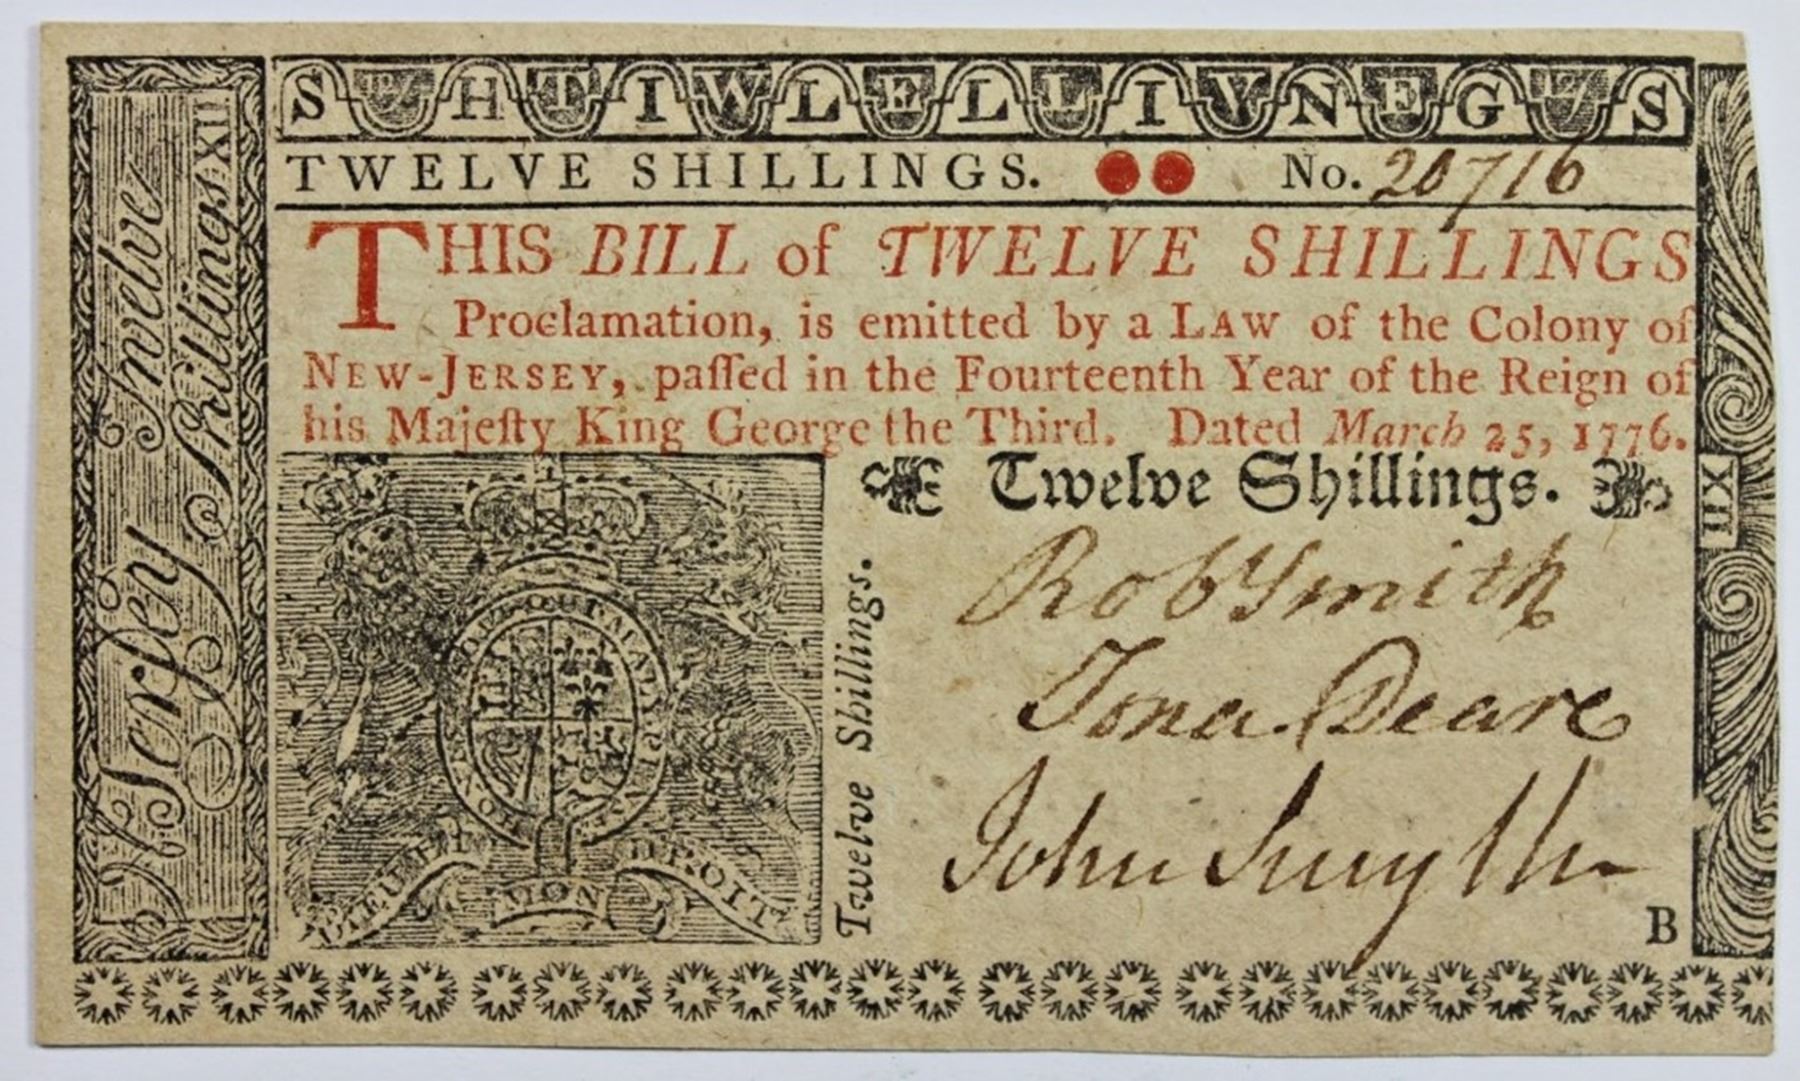 S 12/ H T I W L E L L I V N E G 12/ S
TWELVE SHILLINGS. No. 20716
THIS BILL of TWELVE SHILLINGS
Proclamation, is emitted by a LAW of the Colony of
NEW-JERSEY, paſſed in the Fourteenth Year of the Reign of
his Majeſty King George the Third. Dated March 25, 1776.
Twelve Shillings.
Robt Smith
Jona. Deare
John Smyth
B
Twelve Shillings.
HONI SOIT QUI MAL Y PENSE
DIEU ET MON DROIT
Jerſey Twelve Shillings XII
XII